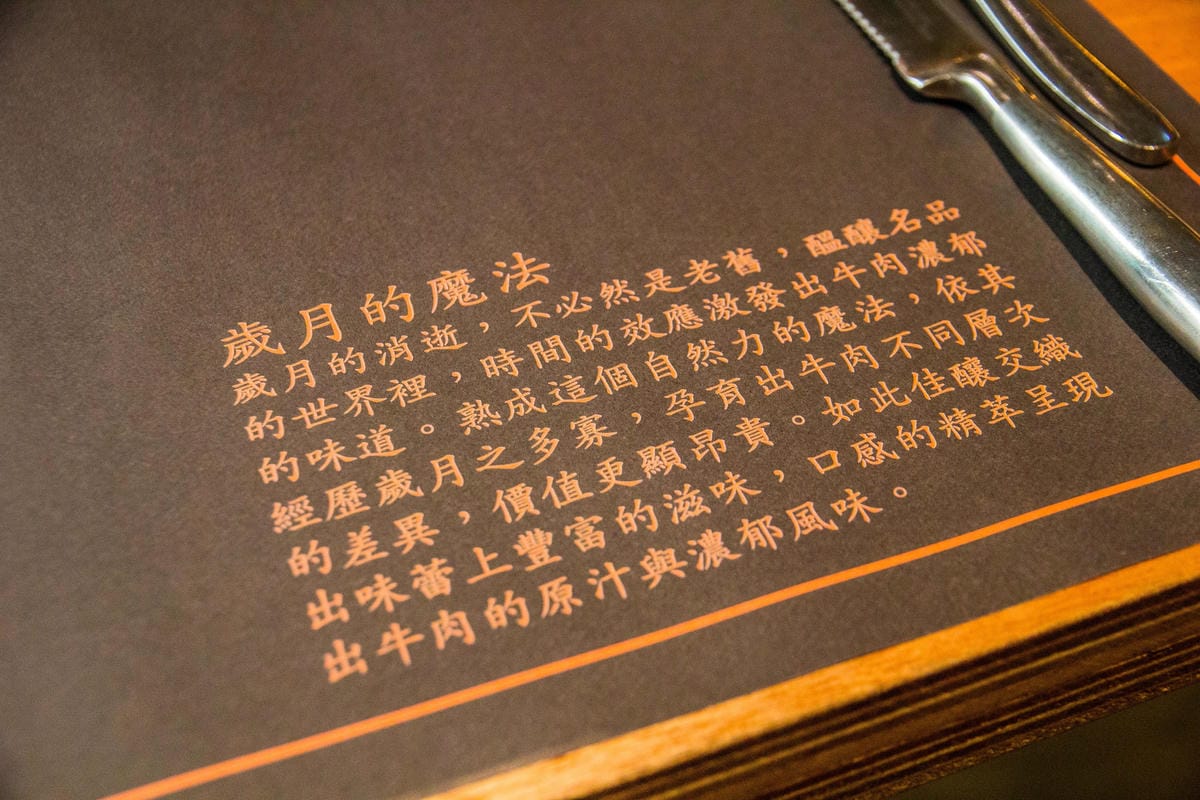 歲月的魔法
歲月的消逝，不必然是老舊，醞釀名品
的世界裡，時間的效應激發出牛肉濃郁
的味道。熟成這個自然力的魔法，依其
經歷歲月之多寡，孕育出牛肉不同層次
的差異，價值更顯昂貴。如此佳釀交織
出味蕾上豐富的滋味，口感的精萃呈現
出牛肉的原汁與濃郁風味。